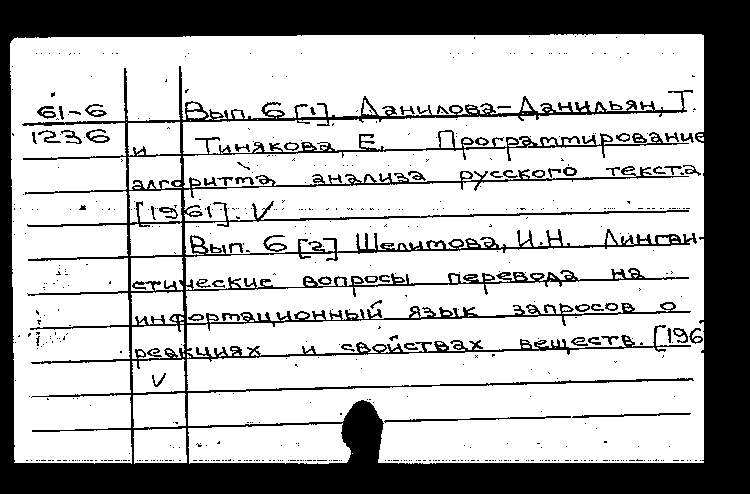 61-6
1236
Вып. 6 [1]. Данилова-Данильян, Т.
и Тинякова, Е. Программирование
алгоритма анализа русского текста.
[1961]. V
Вып. 6 [2] Шелимова, И.Н. Лингви-
стические вопросы перевода на
информационный язык запросов о
реакциях и свойствах веществ. [196
V